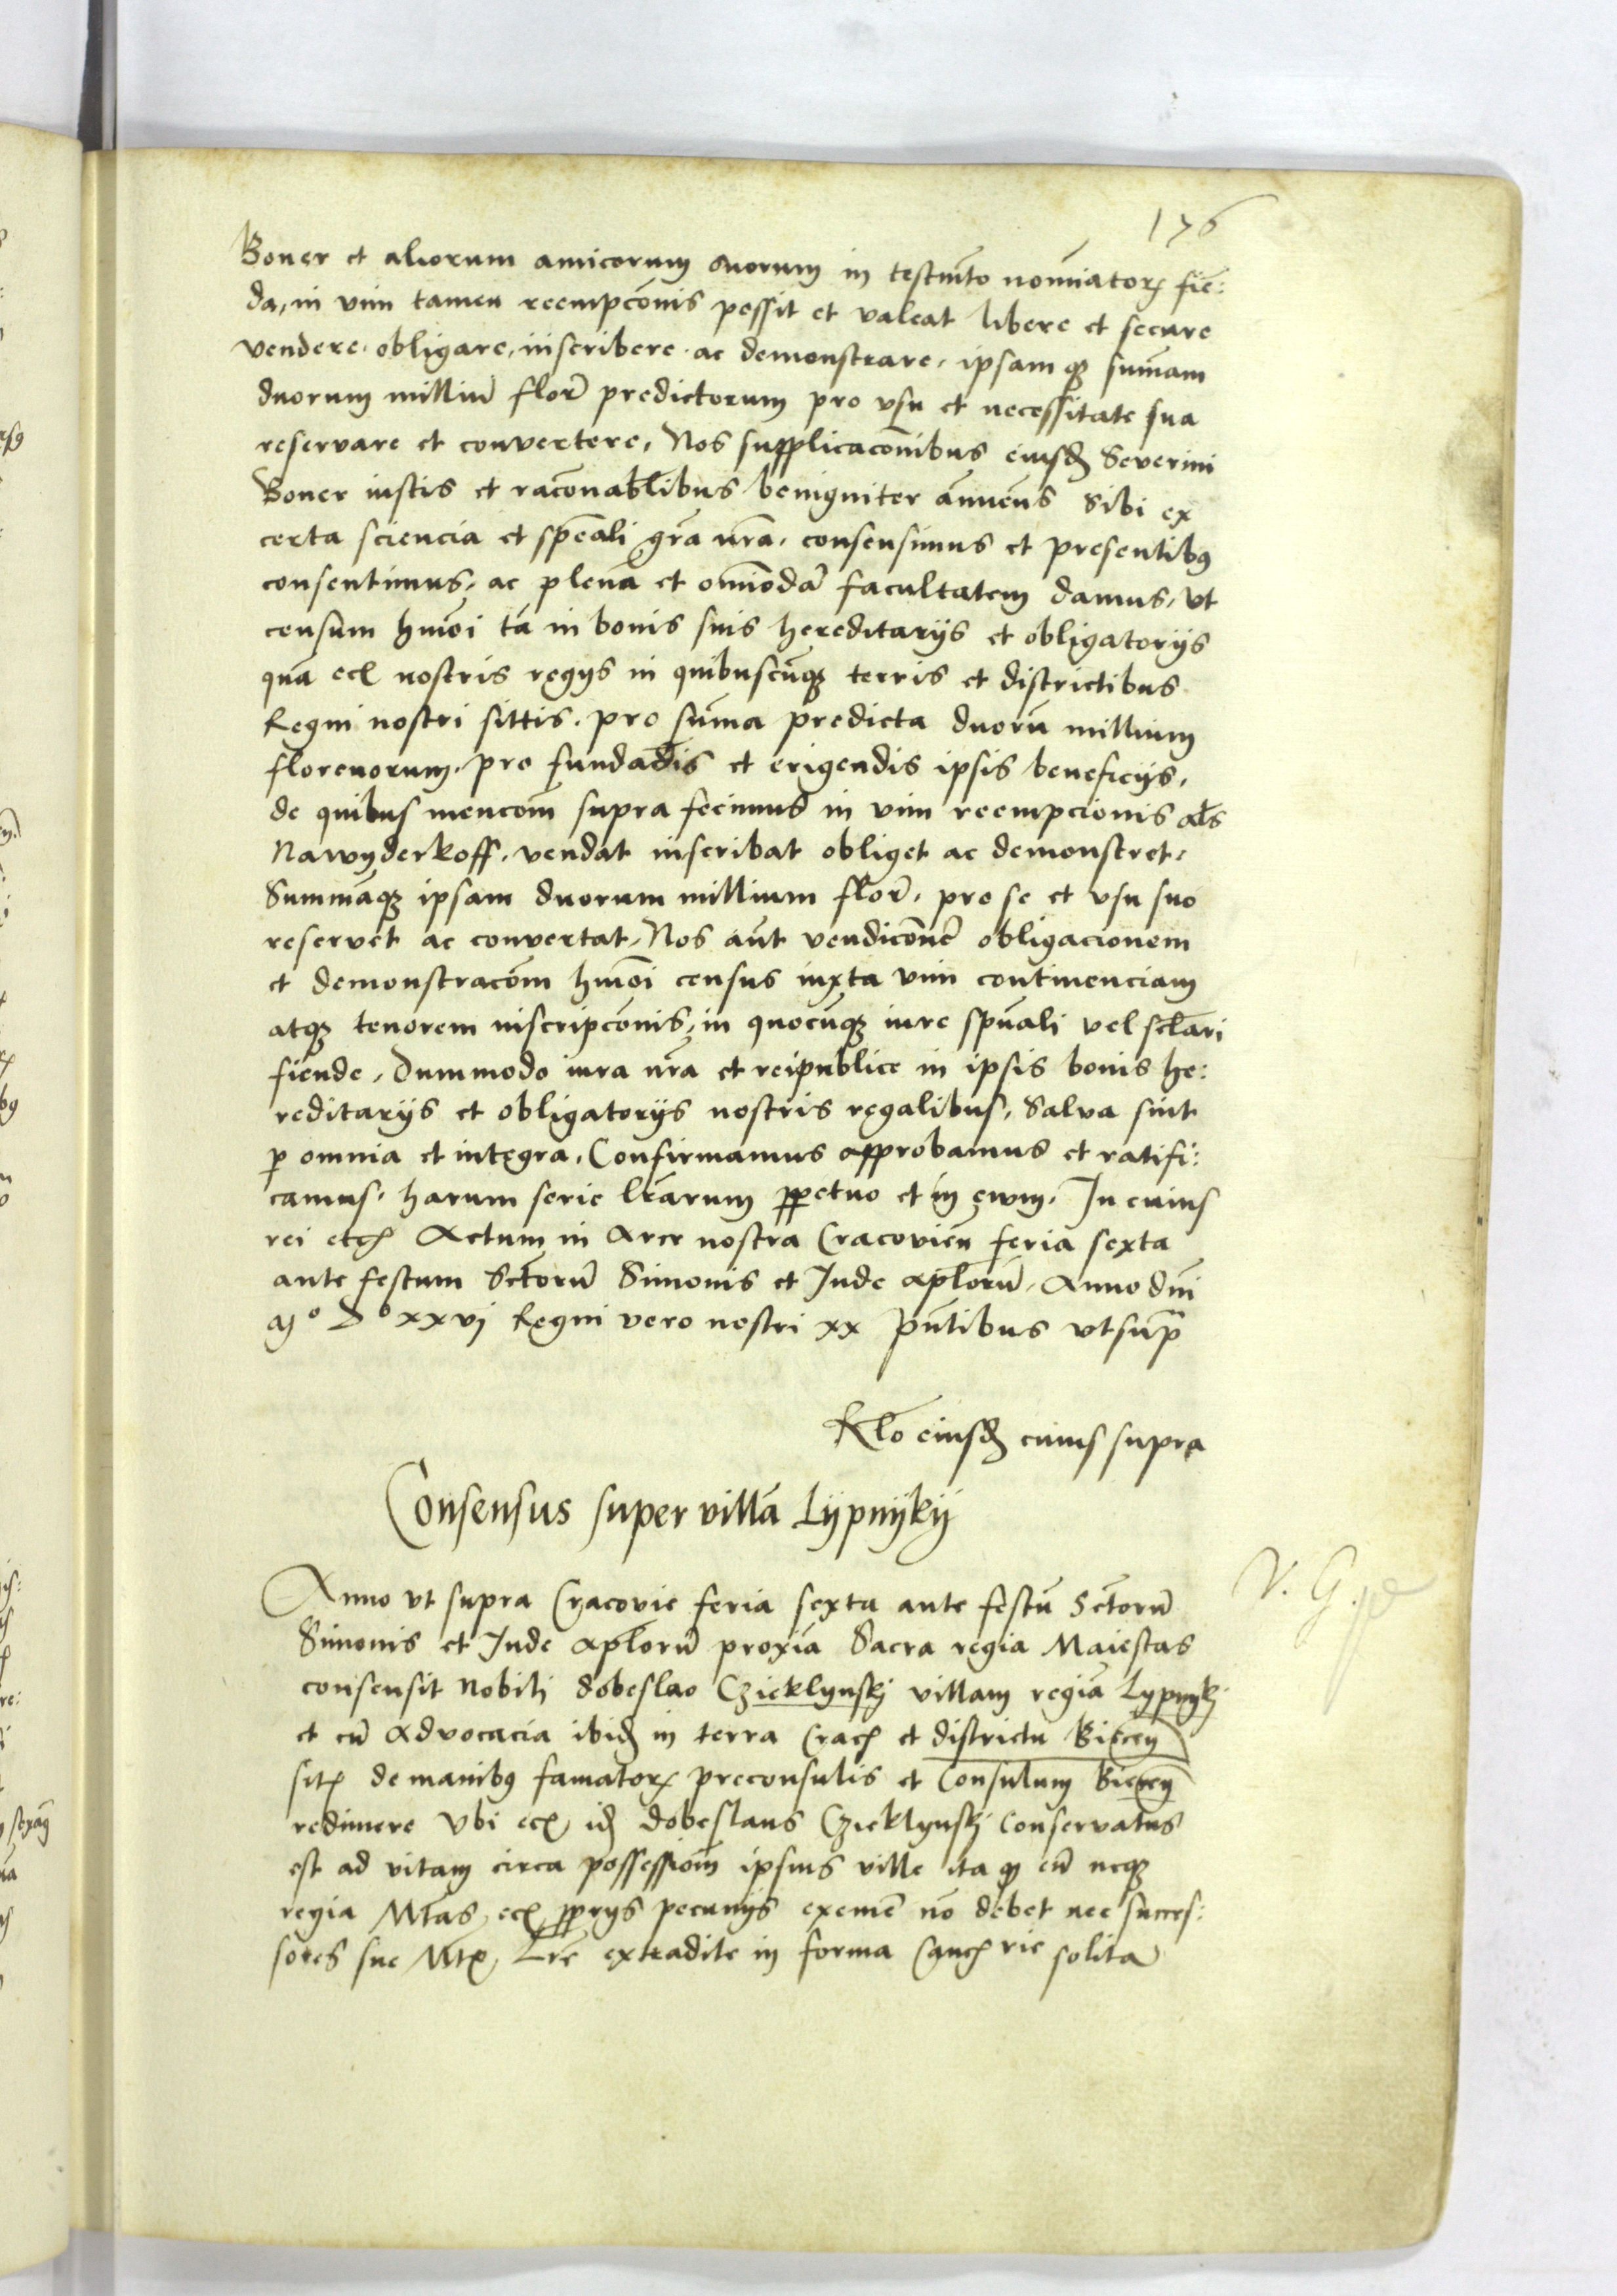 176
Boner et aliorum amicorum suorum in testm̄to nomīator̨ fiē:
da, in vim tamen reempcōnis possit et valeat libere et secure
vendere. obligare, inscribere. ac demonstrare, ipsam q̨ sum̄am
duorum milliū flor̄ predictorum pro vsu et necessitate sua
reservare et convertere, Nos supplicacōnibus eiusd̨ Severini
Boner iustis et racōnabl̄ibus benigniter ānuen̄s Sibi ex
certa sciencia et sp̄eali gr̄a nr̄a, consensimus et presentibꝰ
consentimus, ac plenā et omīodā facultatem damus, vt
censum hm̄oi tā in bonis suis hereditarijs et obligatorijs
quā ecꝭ nostris regijs in quibuscūqꝫ terris et districtibus
Regni nostri sittis. pro sūma predicta duorū millium
florenorum, pro fundādis et erigendis ipsis beneficijs,
de quibus mencōm̄ supra fecimus in vim reempcionis al̄s
Nawyderkoff, vendat inscribat obliget ac demonstret,
Summāqꝫ ipsam duorum millium flor̄, pro se et vsu suo
reservet ac convertat, Nos aūt vendicōnē obligacionem
et demonstracōm̄ hm̄oi census iuxta vim continenciam
atqꝫ tenorem inscripcōnis, in quocūqꝫ iure spūali vel sēlari
fiende, Dummodo iura nr̄a et reipublice in ipsis bonis he:
reditarijs et obligatorijs nostris regalibus, Salva sint
ꝑ omnia et integra, Confirmamus approbamus et ratifi:
camus, harum serie lr̄arum ꝑpetuo et in ewm, In cuius
rei etcꝭ Actum in Arce nostra Cracovieñ feria sexta
ante festum Sctōrū Simonis et Jude apl̄orū, Anno dn̄i
Mº Dº xxvj Regni vero nostri xx Pn̄tibus vtsup̄
Rl̄o eiusd̨ cuius supra
Consensus super villā Lypnyky
Anno vt supra Cracovie feria sexta ante festū Sctōrū
Simonis et Jude apl̄orū proxīa Sacra regia Maiestas
consensit Nobili dobeslao Czieklynskj villam regiā Lypnykj
et cū Advocacia ibid̨ in terra Cracꝭ et districtu Biecen̄
sitꝭ de manibꝰ famator̨ preconsulis et Consulum Biecen̄
redimere Vbi ecꝭ id̨ dobeslaus Czieklynskj Conservatus
est ad vitam circa possessiōm̄ ipsius ville ita ꝙ eū neqꝫ
regia Mtās, ecꝭ ꝓprijs pecunijs eximē nō debet nec succes:
sores sue Mtꝭ, Lr̄e extradite in forma Cancꝭrie solita
V. G.